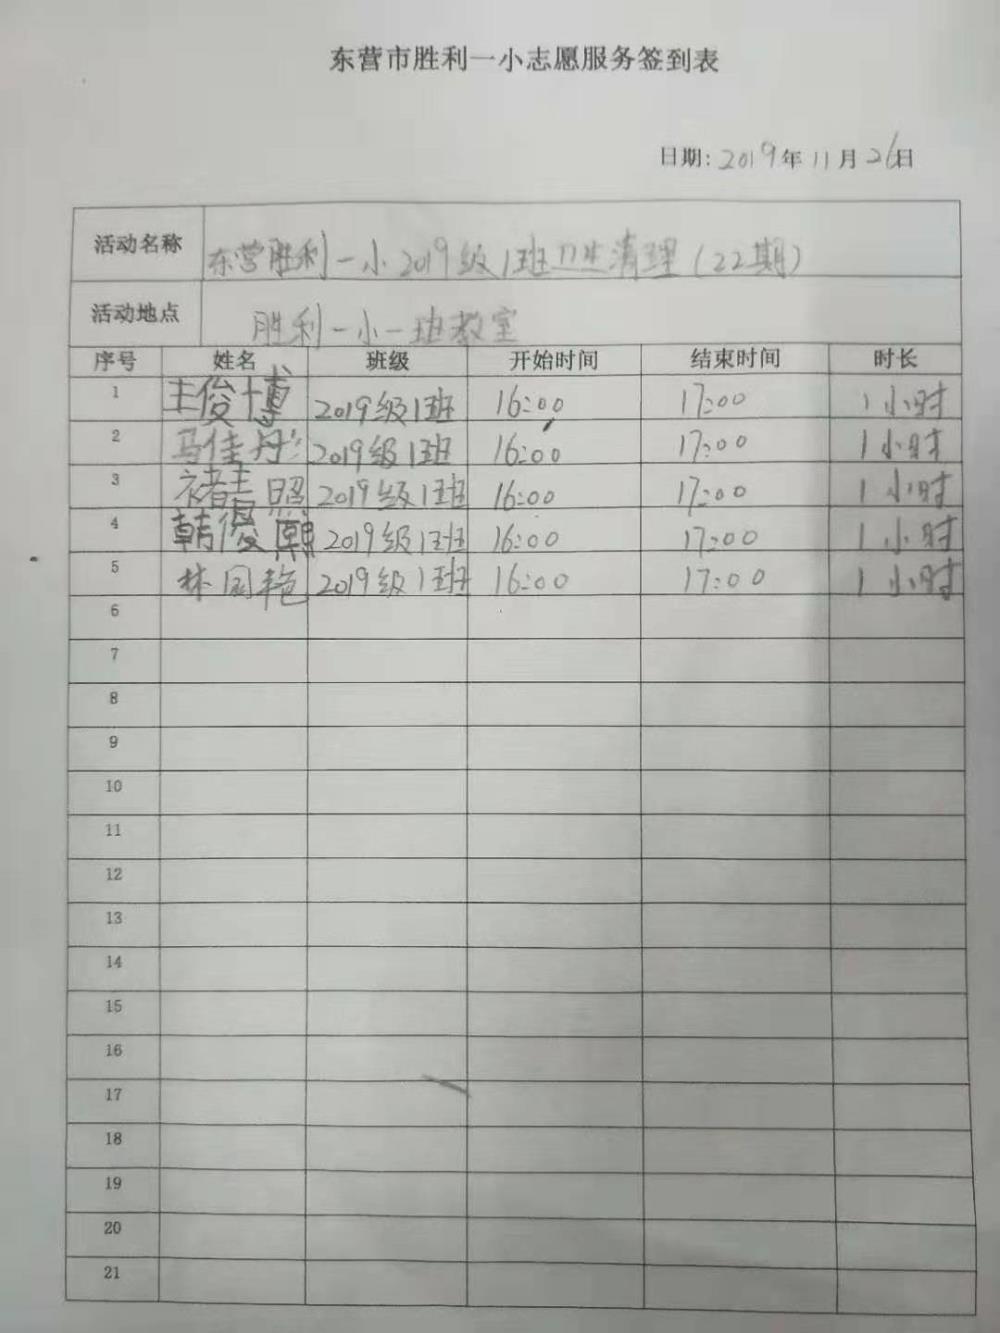 东营市胜利一小志愿服务签到表
日期：2019年11月26日
活动名称 东营胜利一小2019级1班卫生清理（22期）
活动地点 胜利一小一班教室
序号 姓名 班级 开始时间 结束时间 时长
1 王俊博 2019级1班 16:00 17:00 1小时
2 马佳彤 2019级1班 16:00 17:00 1小时
3 褚 照 2019级1班 16:00 17:00 1小时
4 韩俊颢 2019级1班 16:00 17:00 1小时
5 林园艳 2019级1班 16:00 17:00 1小时
6
7
8
9
10
11
12
13
14
15
16
17
18
19
20
21